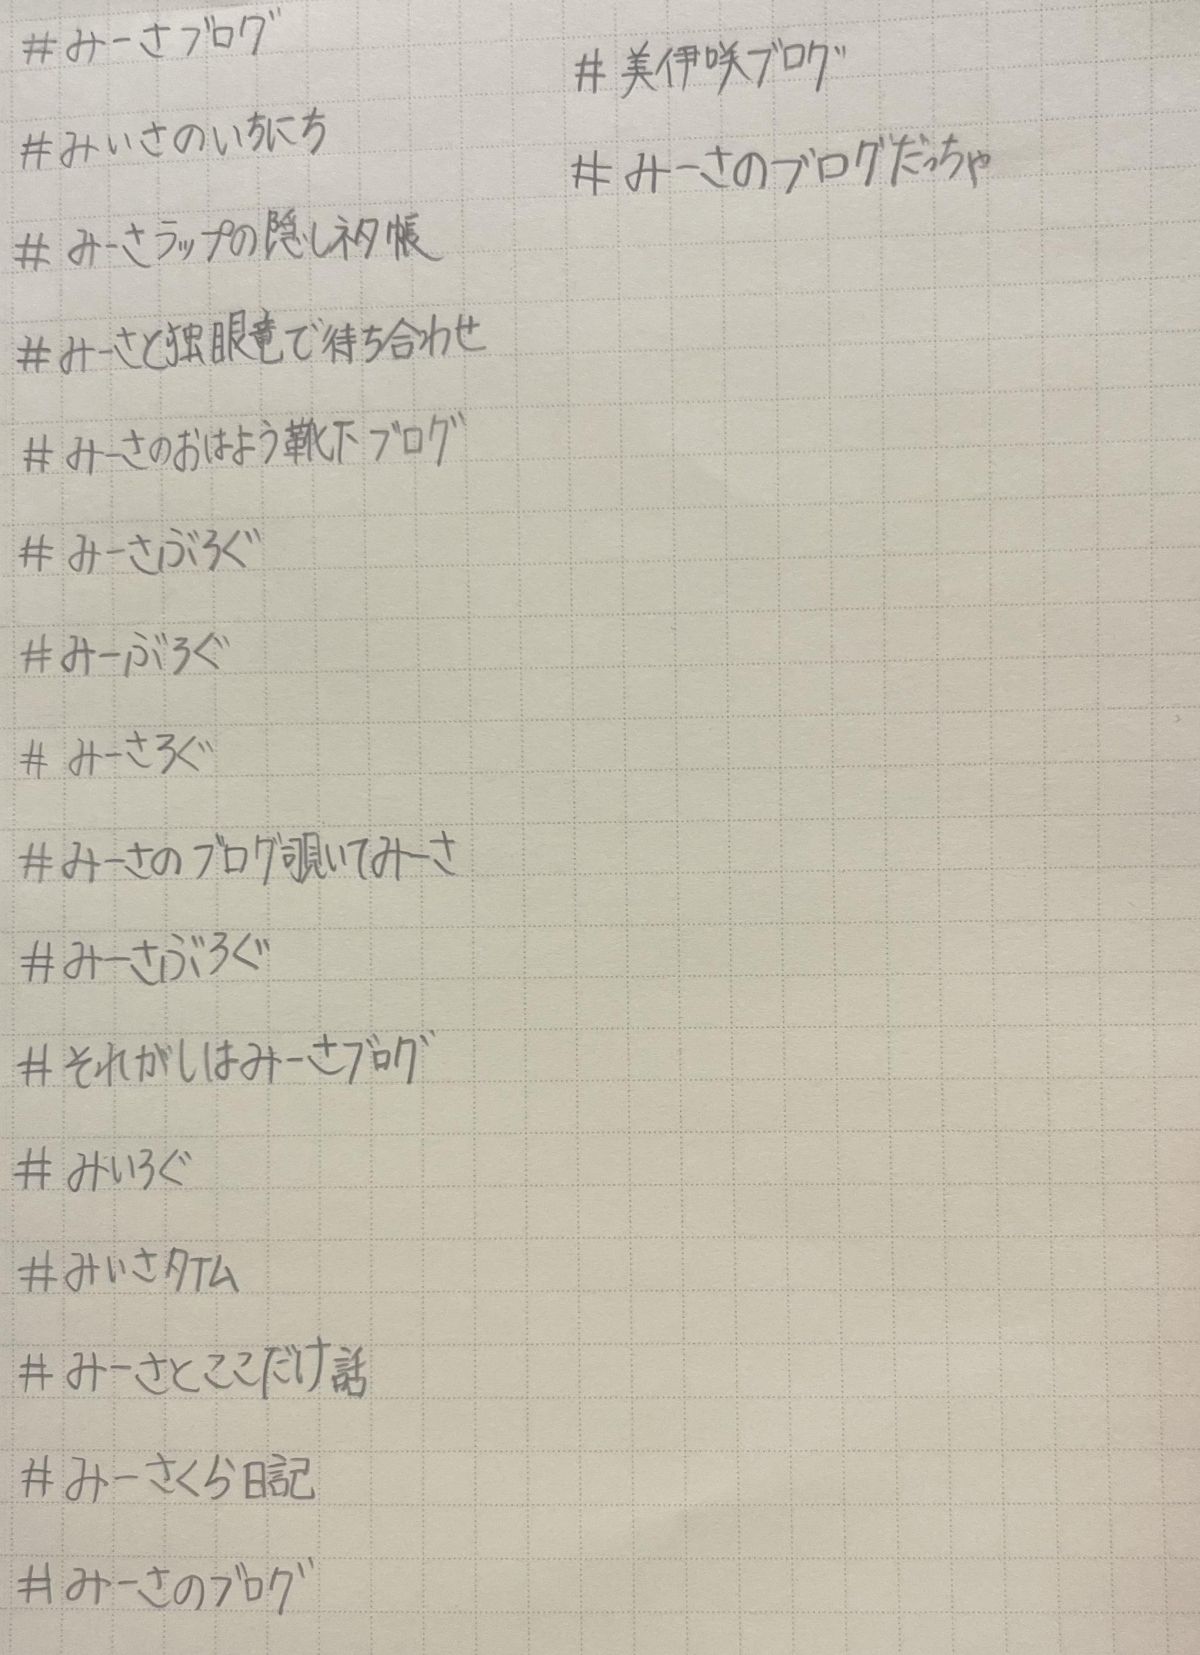 #みーさブログ
#みぃさのいちにち
#みーさラップの隠しネタ帳
#みーさと独眼竜で待ち合わせ
#みーさのおはよう靴下ブログ
#みーさぶろぐ
#みーぶろぐ
#みーさろぐ
#みーさのブログ覗いてみーさ
#みーさぶろぐ
#それがしはみーさブログ
#みいろぐ
#みぃさタイム
#みーさとここだけ話
#みーさくら日記
#みーさのブログ
#美伊咲ブログ
#みーさのブログだっちゃ